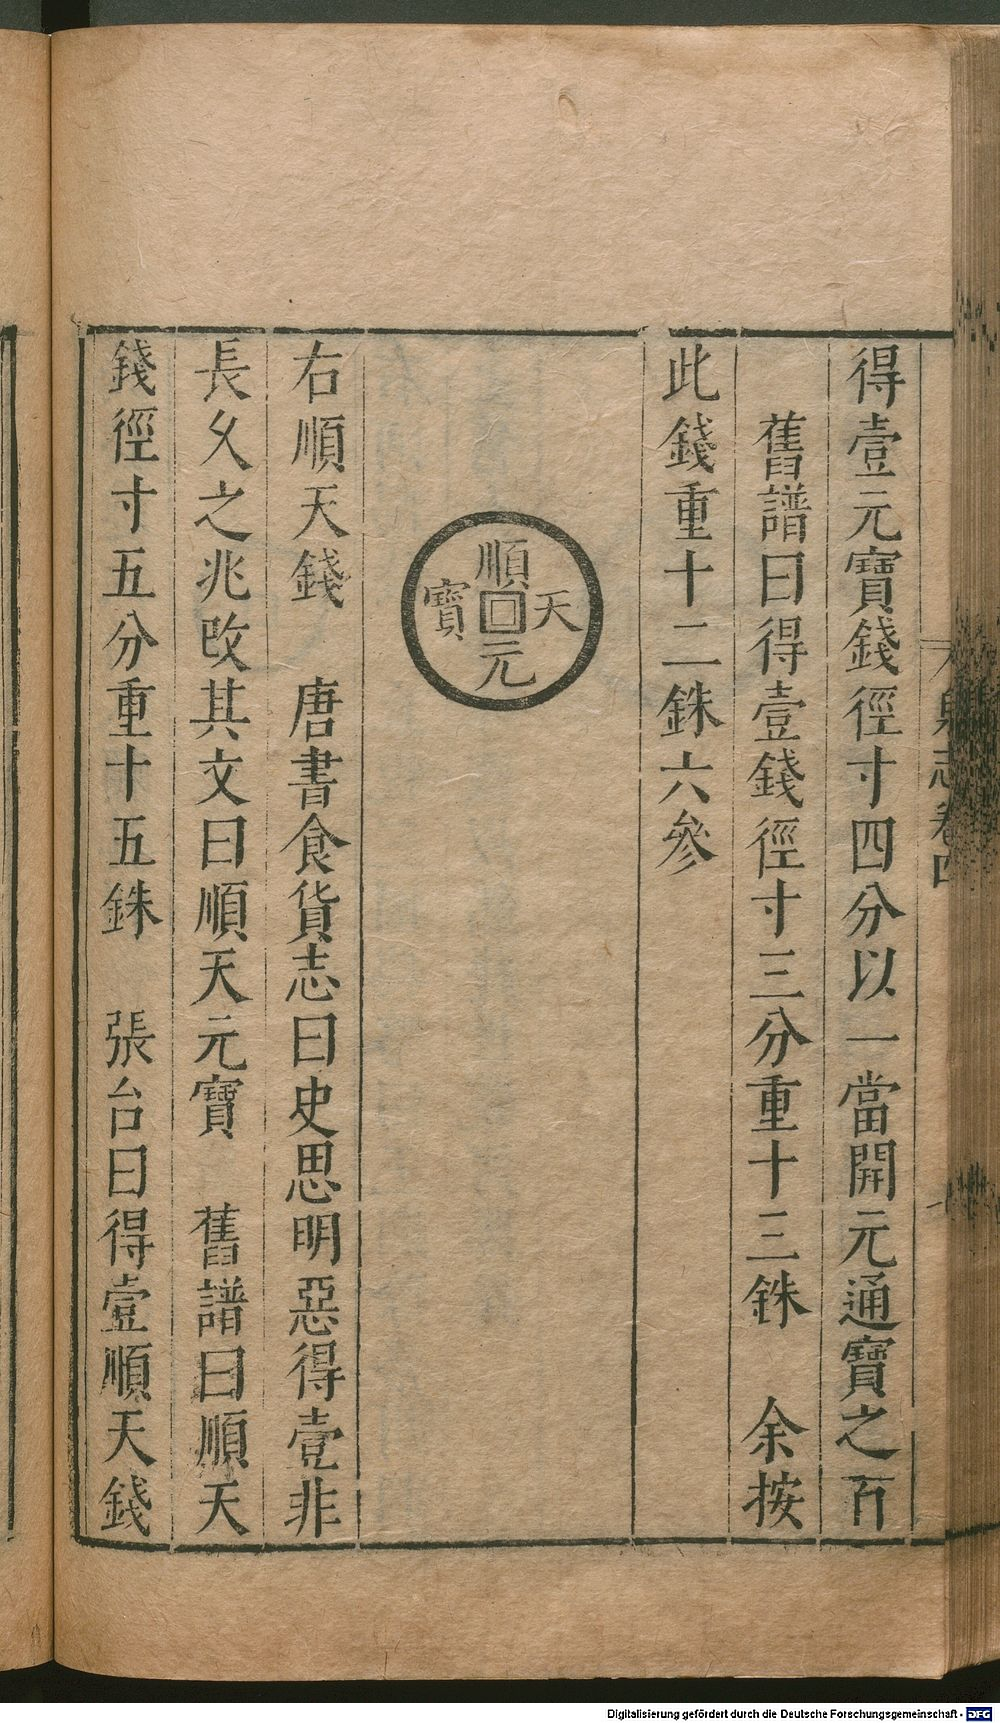 得壹元寶錢徑寸四分以一當開元通寶之百
舊譜曰得壹錢徑寸三分重十三銖　余按
此錢重十二銖六參
順天元寶
右順天錢　唐書食貨志曰史思明惡得壹非
長久之兆改其文曰順天元寶　舊譜曰順天
錢徑寸五分重十五銖　張台曰得壹順天錢
志卷四
Digitalisierung gefördert durch die Deutsche Forschungsgemeinschaft - DFG